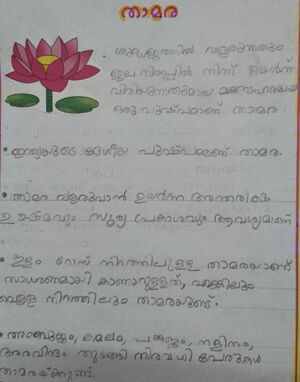 താമര
• ശുദ്ധജലത്തിൽ വളരുന്നതും
ജല നിരപ്പിൽ നിന്ന് ഉയർന്ന്
വിരിയുന്നതുമായ മനോഹരമായ
ഒരു പുഷ്പമാണ് താമര.
• ഇന്ത്യയുടെ ദേശീയ പുഷ്പമാണ് താമര.
• താമര വളരുവാൻ ഉയർന്ന അന്തരീക്ഷ
ഉഷ്മവും സൂര്യ പ്രകാശവും ആവശ്യമാണ്.
• ഇളം റോസ് നിറത്തിലുള്ള താമരയാണ്
സാധരണമായി കാണാറുള്ളത്, എങ്കിലും
വെള്ള നിറത്തിലും താമരയുണ്ട്.
• അംബുജം, കമലം, പങ്കജം, നളിനം,
അരവിന്ദം തുടങ്ങി നിരവധി പേരുകൾ
താമരയ്ക്കുണ്ട്.